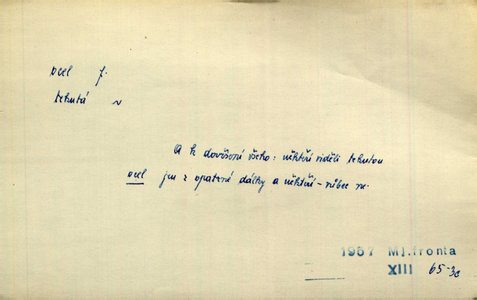 ocel f.
tekutá ~
A k dovršení všeho: někteří viděli tekutou
ocel jen z opatrné dálky a někteří - vůbec ne.
1957 Ml.fronta
XIII 65-3c